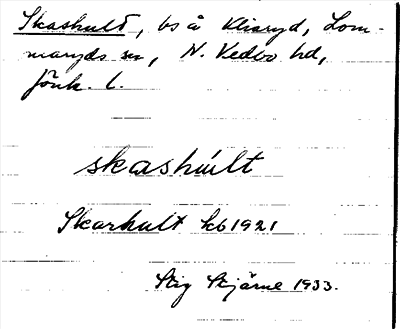 Skashult, bs å Kliaryd, Lom-
maryds sn, N. Vedbo hd,
Jönk. l.
skashúlt
Skarhult kb 1921
Stig Stjärne 1933.